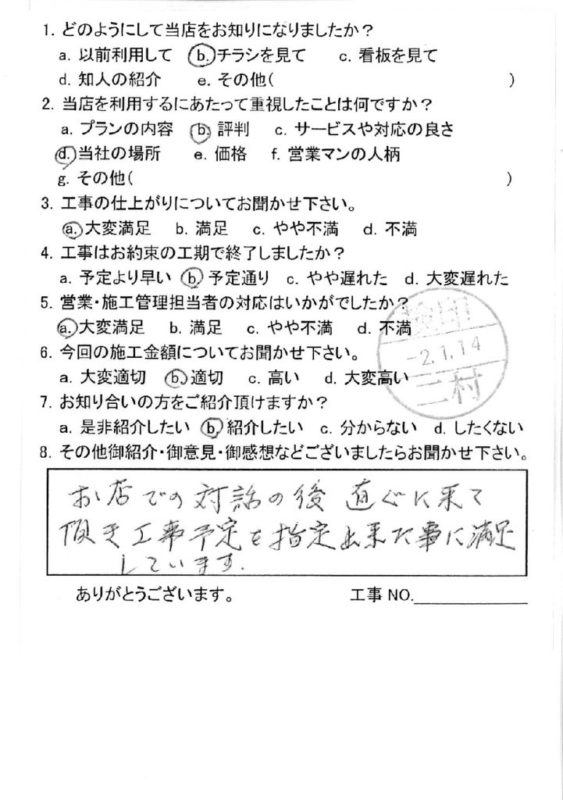 1. どのようにして当店をお知りになりましたか？
a. 以前利用して　b. チラシを見て　c. 看板を見て
d. 知人の紹介　e. その他(　)
2. 当店を利用するにあたって重視したことは何ですか？
a. プランの内容　b. 評判　c. サービスや対応の良さ
d. 当社の場所　e. 価格　f. 営業マンの人柄
g. その他(　)
3. 工事の仕上がりについてお聞かせ下さい。
a. 大変満足　b. 満足　c. やや不満　d. 不満
4. 工事はお約束の工期で終了しましたか？
a. 予定より早い　b. 予定通り　c. やや遅れた　d. 大変遅れた
5. 営業・施工管理担当者の対応はいかがでしたか？
a. 大変満足　b. 満足　c. やや不満　d. 不満
6. 今回の施工金額についてお聞かせ下さい。
a. 大変適切　b. 適切　c. 高い　d. 大変高い
-2.1.14
二村
7. お知り合いの方をご紹介頂けますか？
a. 是非紹介したい　b. 紹介したい　c. 分からない　d. したくない
8. その他御紹介・御意見・御感想などございましたらお聞かせ下さい。
お店での対話の後 直ぐに来て
頂き工事予定を指定出来た事に満足
しています.
ありがとうございます。　工事 NO.